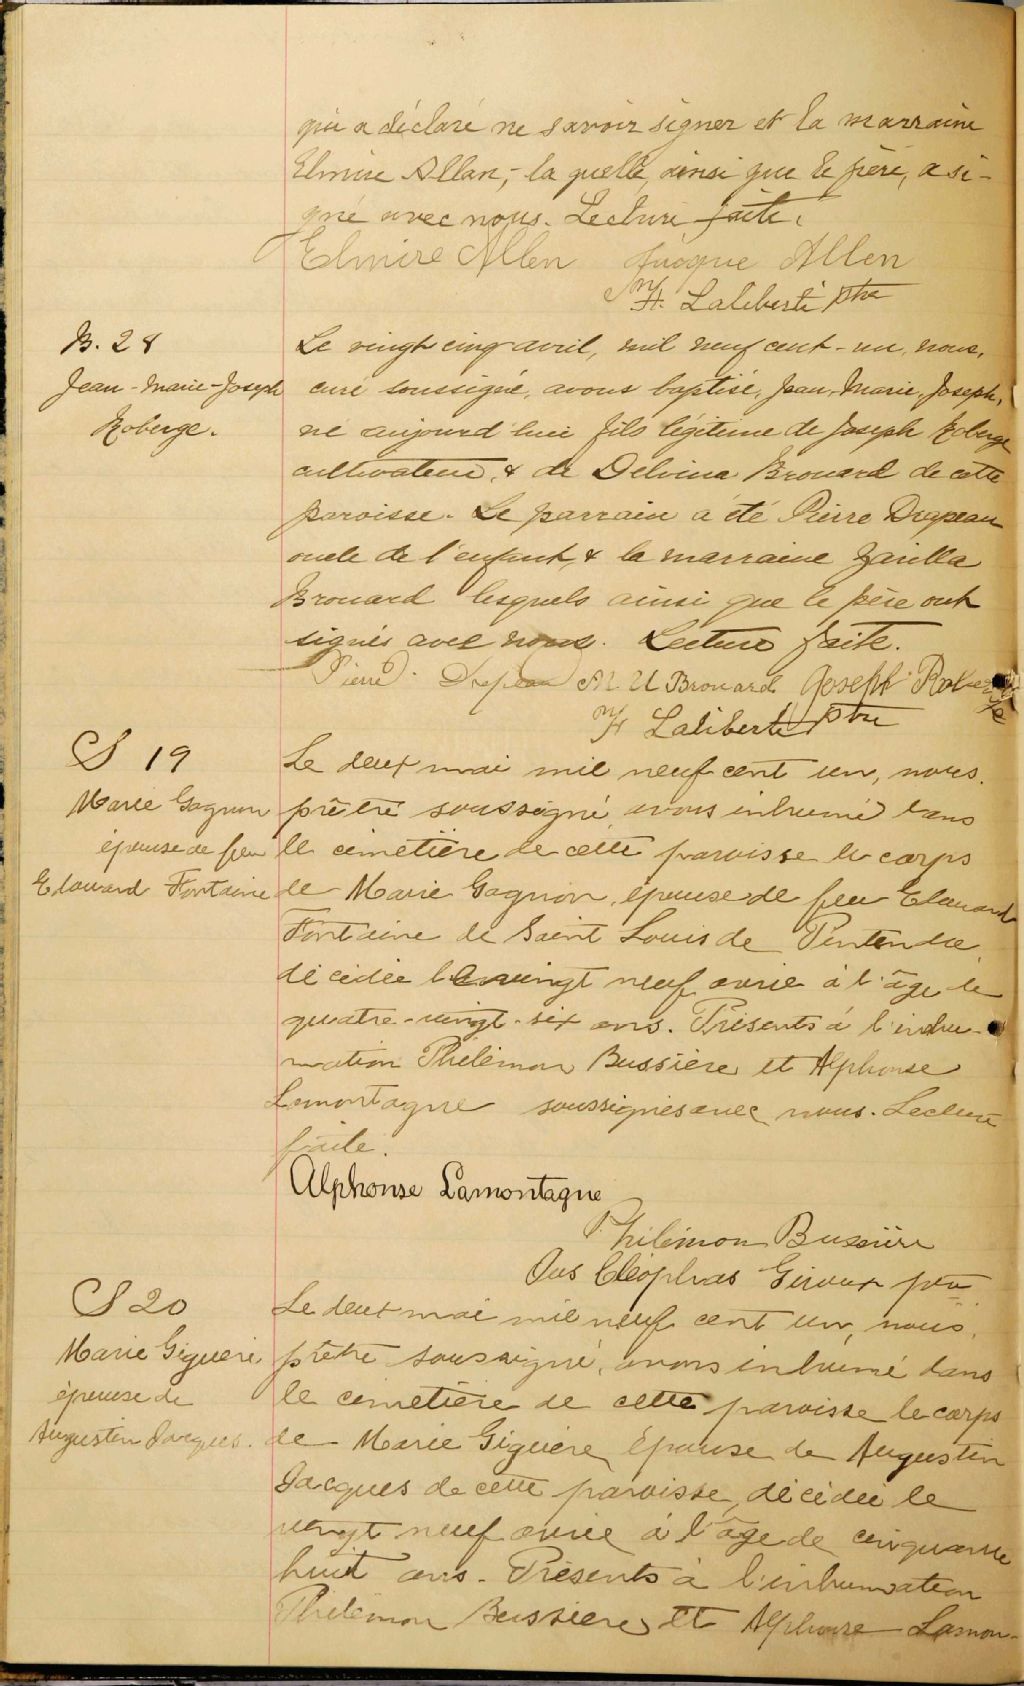 qui a déclaré ne savoir signer et la marraine
Elmire Allan, la quelle, ainsi que le père, a si-
gné avec nous. Lecture faite.
Elmire Allen Allen
Laliberté Ptre
B. 28
Jean-Marie-Joseph
Roberge.
Le vingt cinq avril, mil neuf cent-un, nous,
curé soussigné, avons baptisé, Jean, Marie, Joseph,
né aujourd'hui fils légitime de Joseph Roberge
cultivateur, & de Delvina Brouard de cette
paroisse. Le parrain a été Pierre Drapeau
oncle de l'enfant, & la marraine
Brouard lesquels ainsi que le père ont
signés avec nous. Lecture faite.
Pierre Drapeau M. U Brouard Joseph Roberge
Laliberté Ptre
S 19
Marie Gagnon
épouse de feu
Edouard Fontaine
Le deux mai mil neuf cent un, nous.
prêtre soussigné avons inhumé dans
le cimetière de cette paroisse le corps
de Marie Gagnon, épouse de feu Edouard
Fontaine de Saint Louis de Pintendre
décédée le vingt neuf avril à l'âge de
quatre-vingt-six ans. Présents à l'inhu-
mation Philémon Bussière et Alphonse
Lamontagne soussignés avec nous. Lecture
faite.
Alphonse Lamontagne
Philémon Bussière
Jos Cléophas Giroux ptre
S 20
Marie Giguère
épouse de
Augustin Jacques.
Le deux mai mil neuf cent un, nous,
prêtre soussigné, avons inhumé dans
le cimetière de cette paroisse le corps
de Marie Giguère, épouse de Augustin
Jacques de cette paroisse, décédée le
vingt neuf avril à l'âge de cinquante
huit ans. Présents à l'inhumation
Philémon Bussière et Alphonse Lamon-